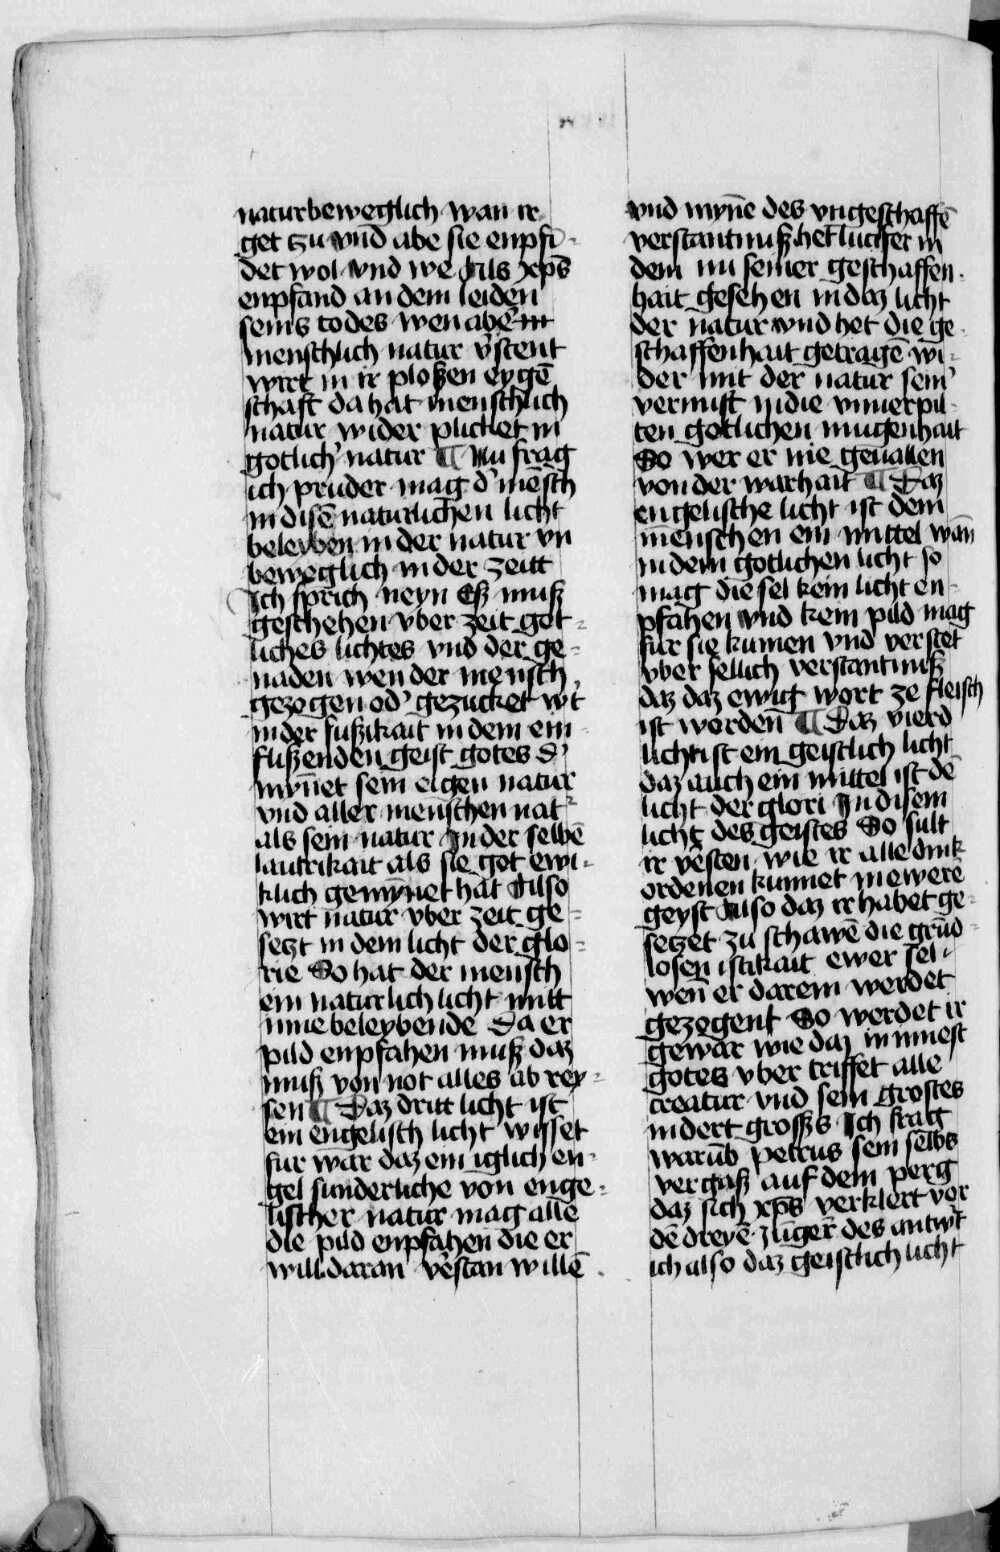 naturbeweglich wan ir
get zu vnd abe sie enpfi-
det wol vnd we Als xp̄s
enpfand an dem leiden
seins todes wen aber in
menschlich natur v̓stent
wirt in ir ploßen eygē
schaft da hat menschlich
natur wider plicket in
gotlich̓ natur ¶ Nu frag
ich pruder mag d̓ mēsch
in disē naturlichen licht
beleyben in der natur vn
beweglich in der zeitt
Ich sprich neyn Eß muß
geschehen vber zeit got-
liches lichtes vnd der ge-
naden wen der mensch
gezogen od̓ gezucket w̓t
in der sußikait in dem ein-
flißenden geist gotes d̓
mynnet sein eigen natur
vnd aller menschen nat̓
als sein natur In der selbē
lautrikait als sie got ewi-
klich gemynnet hat Also
wirt natur vber zeit ge-
setzt in dem licht der glo-
rie So hat der mensch
ein naturlich licht mitt
inne beleybende Da er
pild enpfahen muß daz
muß von not alles ab rey-
sen ¶ Daz dritt licht ist
ein engelisch licht wisset
fur war daz ein iglich en-
gel sunderliche von enge-
lischer natur mag alle
die pild enpfahen die er
will daran v̓stan willē
vnd mynē des vngeschaffē
verstantnuß het lucifer in
dem nu seiner geschaffen-
hait gesehen in daz licht
der natur vnd het die ge-
schaffenhait getragē wi-
der mit der natur sein̓
vernuft in die vnuerpil-
ten gotlichen mugenhait
So wer er nie geuallen
von der warhait ¶ Daz
engelische licht ist dem
menschen ein mittel wan
in dem gotlichen licht so
mag die sel kein licht en-
pfahen vnd kein pild mag
fur sie kumen vnd verstet
vber sellich verstantnuß
daz daz ewig wort ze fleisch
ist worden ¶ Daz vierd
licht ist ein geistlich licht
daz auch ein mittel ist dē
licht der glori In disem
licht des geistes So sult
ir v̓sten wie ir alle dink
ordenen kunnet in ewerē
geyst Also daz ir habet ge-
setzet zu schawē die grūd-
losen istikait ewer sel
wen er darein werdet
gezogent So werdet ir
gewar wie daz in innest
gotes vber triffet alle
creatur vnd sein grostes
mdert grosss Ich frag
warūb petrus sein selbs
vergaß auf dem perg
daz sich xp̄s verklert vor
dē dreyē iūgern des antw̓t
ich also daz geistlich licht